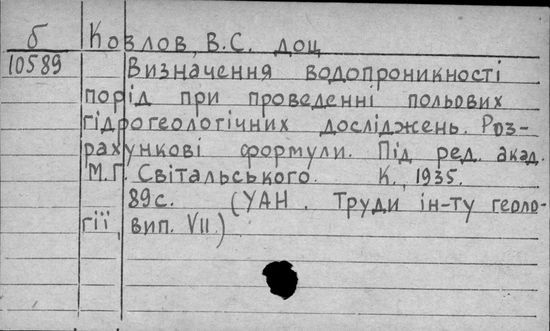 б Козлов, В.С. доц
10589 Визначення водопроникності
порід при проведенні польових
гідрогеологічних досліджень. Роз-
рахункові формули. Під ред. акад.
М.Г. Світальського. К., 1935.
89с. (УАН. Труди ін-ту геоло-
гії, вип. VII.)